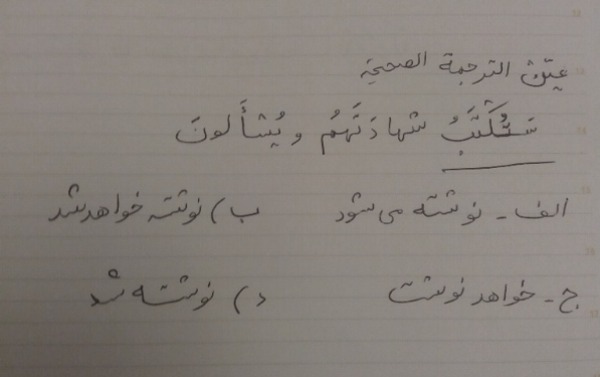 عیّن الترجمة الصحیحة
سَتُکْتَبُ شهادَتَهُم و یُسْأَلونَ
الف - نوشته می شود ب) نوشته خواهد شد
ج - خواهد نوشت د) نوشته شد